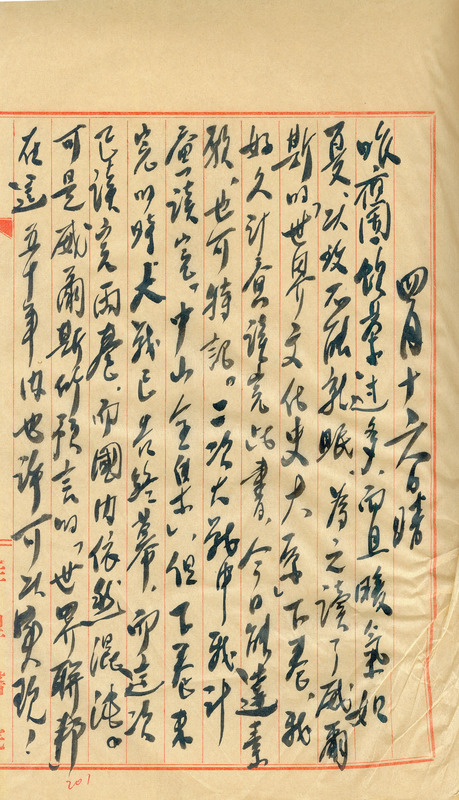 四月十六日晴
昨夜因飲景过多，而且暖氣如
夏，以致不能就眠，為之讀了威爾
斯的「世界文化史大系」下卷，我
好久計畫讀完此書，今日能達素
願，也可特記。二次大戰中我计
畫讀完「中山全集」，但下卷未
完的時候大戰已告終幕，而這次
已读完兩卷，而國内依然混沌。
可是威爾斯所預言的「世界聯邦
在這五十年内也許可以實現！
201